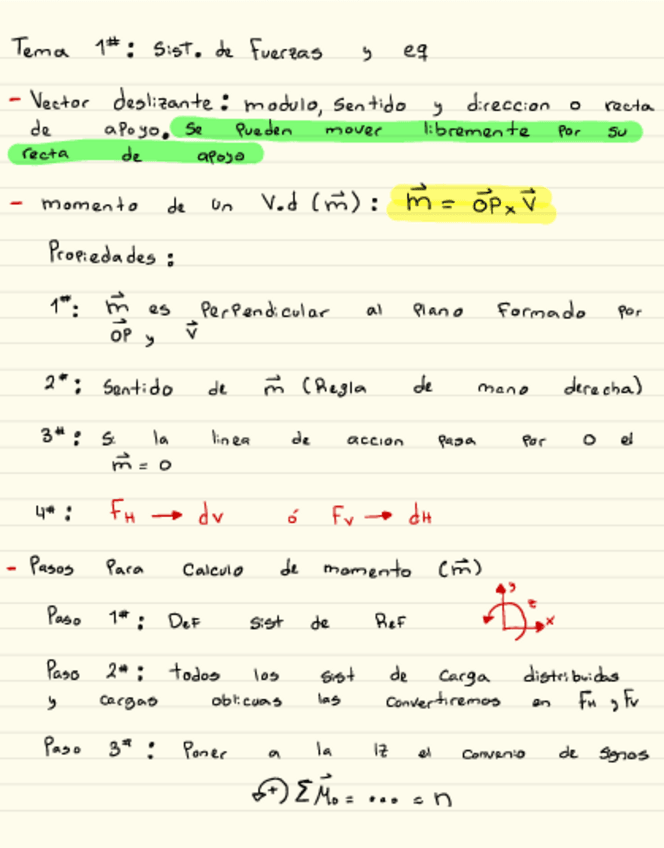 Tema 1#: Sist. de Fuerzas y eq
- Vector deslizante: modulo, sentido y direccion o recta
de apoyo. Se pueden mover libremente por su
recta de apoyo
- momento de un V.d (m⃗): m⃗ = OP⃗ x V⃗
Propiedades:
1#: m⃗ es Perpendicular al plano Formado por
OP⃗ y V⃗
2#: Sentido de m⃗ (Regla de mano derecha)
3#: Si la linea de accion pasa por O el
m⃗ = 0
4#: FH → dv ó Fv → dH
- Pasos Para Calculo de momento (m⃗)
Paso 1#: Def sist de Ref
y
z
x
Paso 2#: todos los sist de carga distribuidas
y cargas oblicuas las convertiremos en FH y Fv
Paso 3#: Poner a la iz el convenio de signos
↶+) Σ M⃗o = ... = n